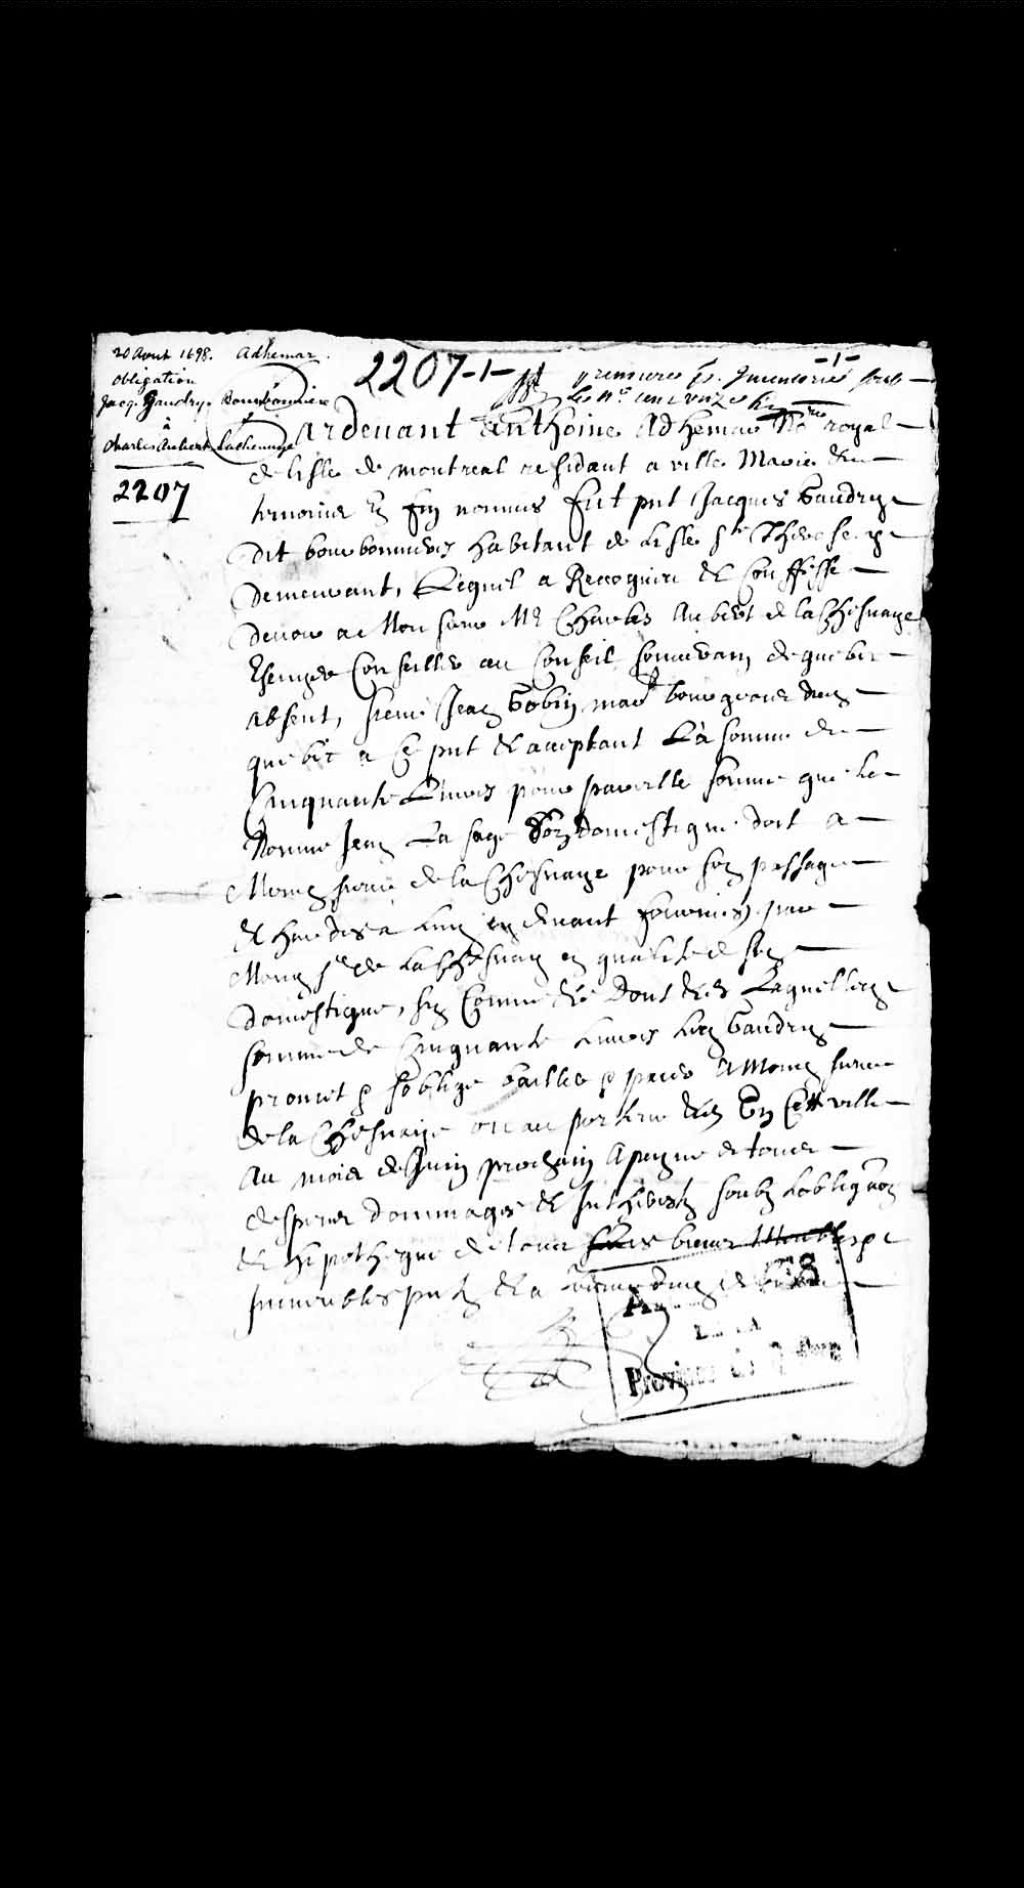 20 Aout 1698. Adhemar.
Obligation
Jacq. Gaudry. Bourbonniere
à
Charles Aubert Lachenaye
2207
2207-1-
-1-
premiere Inventorié soub
Pardevant Anthoine Adhemar No.re royal
de lisle de montreal residant a ville Marie &
temoins En fin nommes fut pnt Jacques Gaudry
dit bourbonniere habitant de Lisle Ste Therese y
demeurant, Lequel a Recognu & Confesse
devoir a Monsieur Me Charles Aubert de la Chesnaye
Conseiller au Conseil souverain de quebec
absent, sieur Jean Gobin mard bourgeois de
quebec a Ce pnt & acceptant La somme de
Cinquante Livres pour pareille somme que le
Nomme Jean La sage Son domestique doit a
Mond sieur de la Chesnaye pour son passage
& hardes a Luy cy devant fournies par
Mond sr de La Chesnaye en qualité de son
domestique, Dont Laquelle
somme de Cinquante Livres Led Gaudry
promet & soblige bailler & paier A Mond sieur
de la Chesnaye ou au porteur En Cette ville
Au mois de Juin prochain A peyne de tous
despens dommages & Intherests soubs Lobligaon
& hipotheque de tous ses biens Meubles &
Immeubles pnts & a
Province de Québec